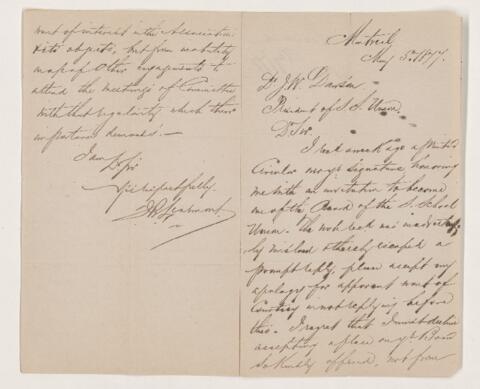 Montreal,
May 5. 1877.
Dr J. W. Dawson
President of S. S. Union.
Dr Sir
I recd a week ago a printed
Circular over yr signature honoring
me with an invitation to become
one of the Board of the S. School
Union. The note
by & thereby escaped a
prompt reply, please accept my
apology for apparent want of
Courtesy in not replying before
this. I regret that I must decline
accepting a place on yr Board
so kindly offered, not from
want of interest in the Association
& its objects, but from inability
of other engagements to
attend the meetings of Committee
with that regularity which their
importance demands.—
I am
Dr Sir
Yrs respectfully
J. B. Learmont.